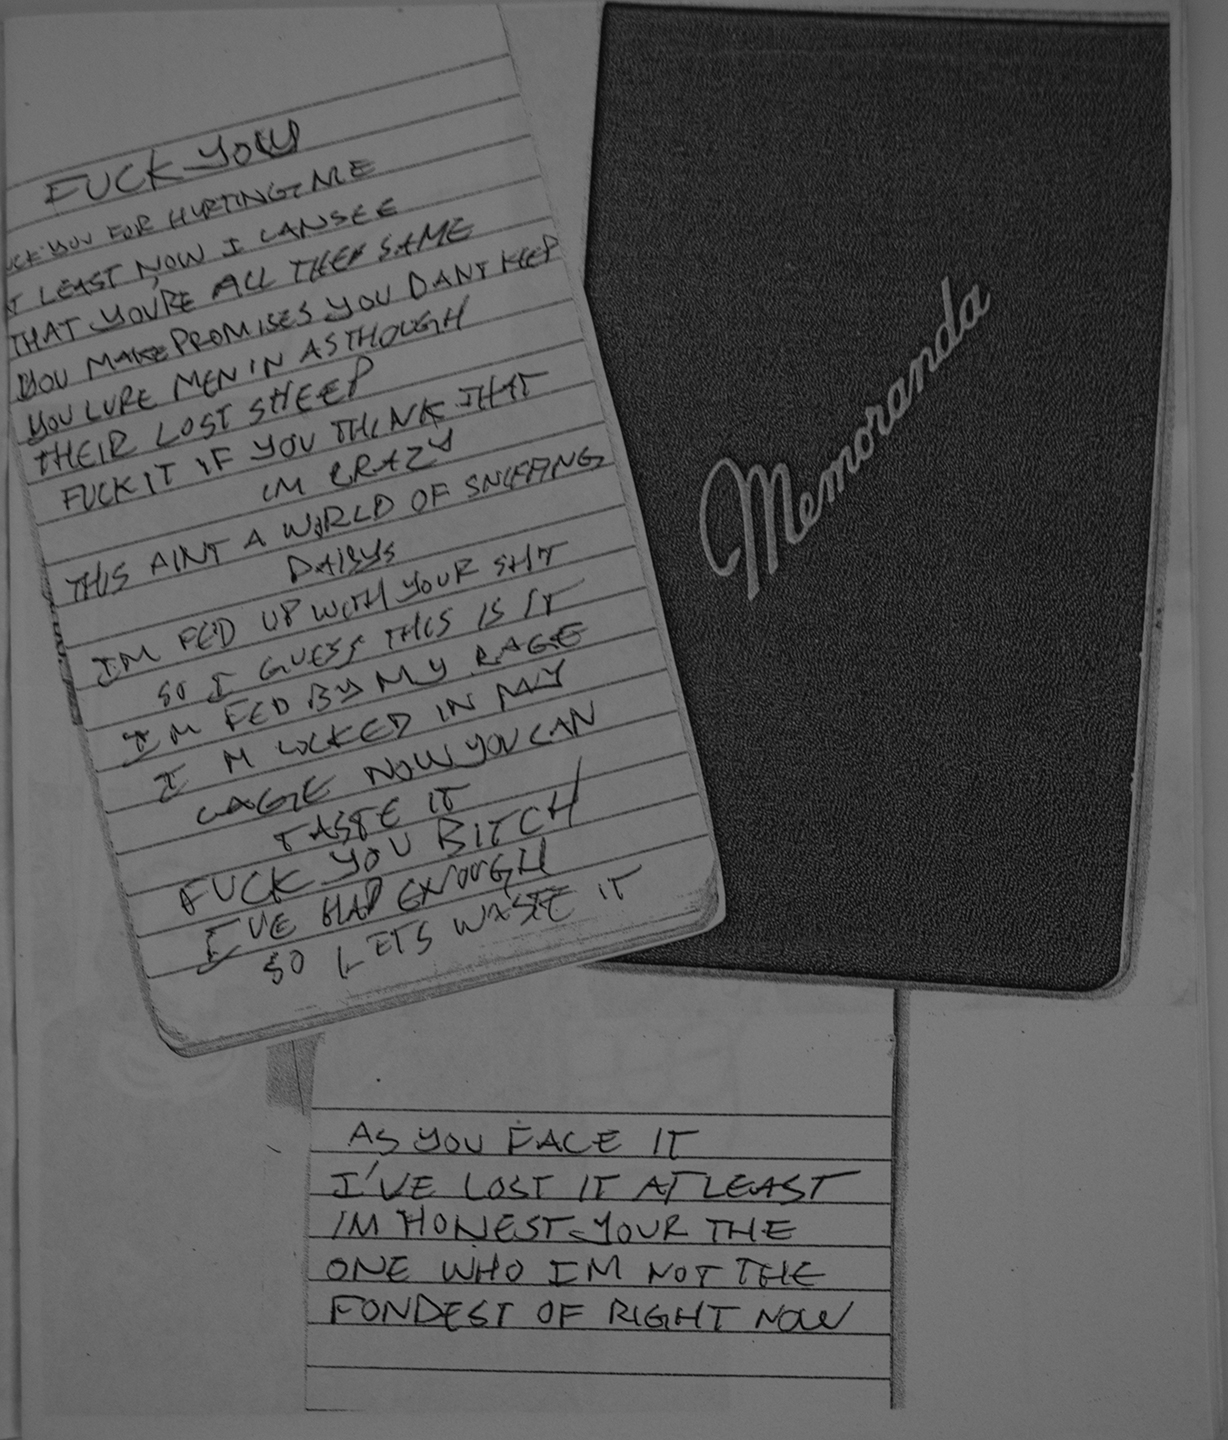 FUCK YOU
UCK YOU FOR HURTING ME
T LEAST NOW I CAN SEE
THAT YOU'RE ALL THE SAME
YOU MAKE PROMISES YOU DANT KEEP
YOU LURE MEN IN AS THOUGH
THEIR LOST SHEEP
FUCK IT IF YOU THINK THAT
IM CRAZY
THIS AINT A WORLD OF SNIFFING
DAISYS
IM FED UP WITH YOUR SHIT
SO I GUESS THIS IS IT
I'M FED BY MY RAGE
I M LOCKED IN MY
CAGE NOW YOU CAN
TASTE IT
FUCK YOU BITCH
I'VE HAD ENOUGH
SO LETS WASTE IT
Memoranda
AS YOU FACE IT
I'VE LOST IT AT LEAST
IM HONEST YOUR THE
ONE WHO IM NOT THE
FONDEST OF RIGHT NOW